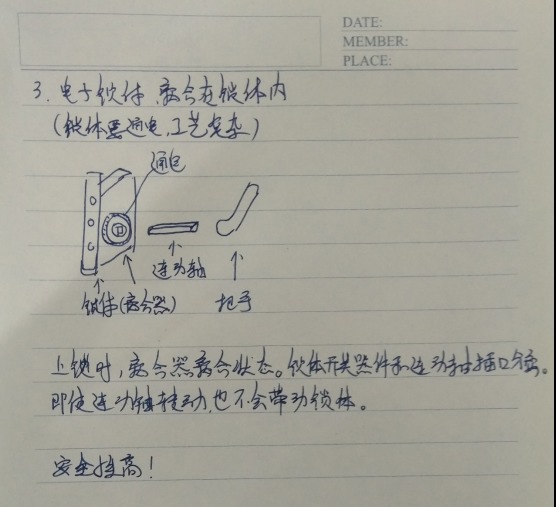 DATE:
MEMBER:
PLACE:
3. 电子锁体,离合在锁体内
(锁体要通电,工艺复杂)
通电
连动轴
锁体(离合器)
把手
上锁时,离合器离合状态。锁体开关器件和连动轴插口分离。
即使连动轴转动,也不会带动锁体。
安全提高!